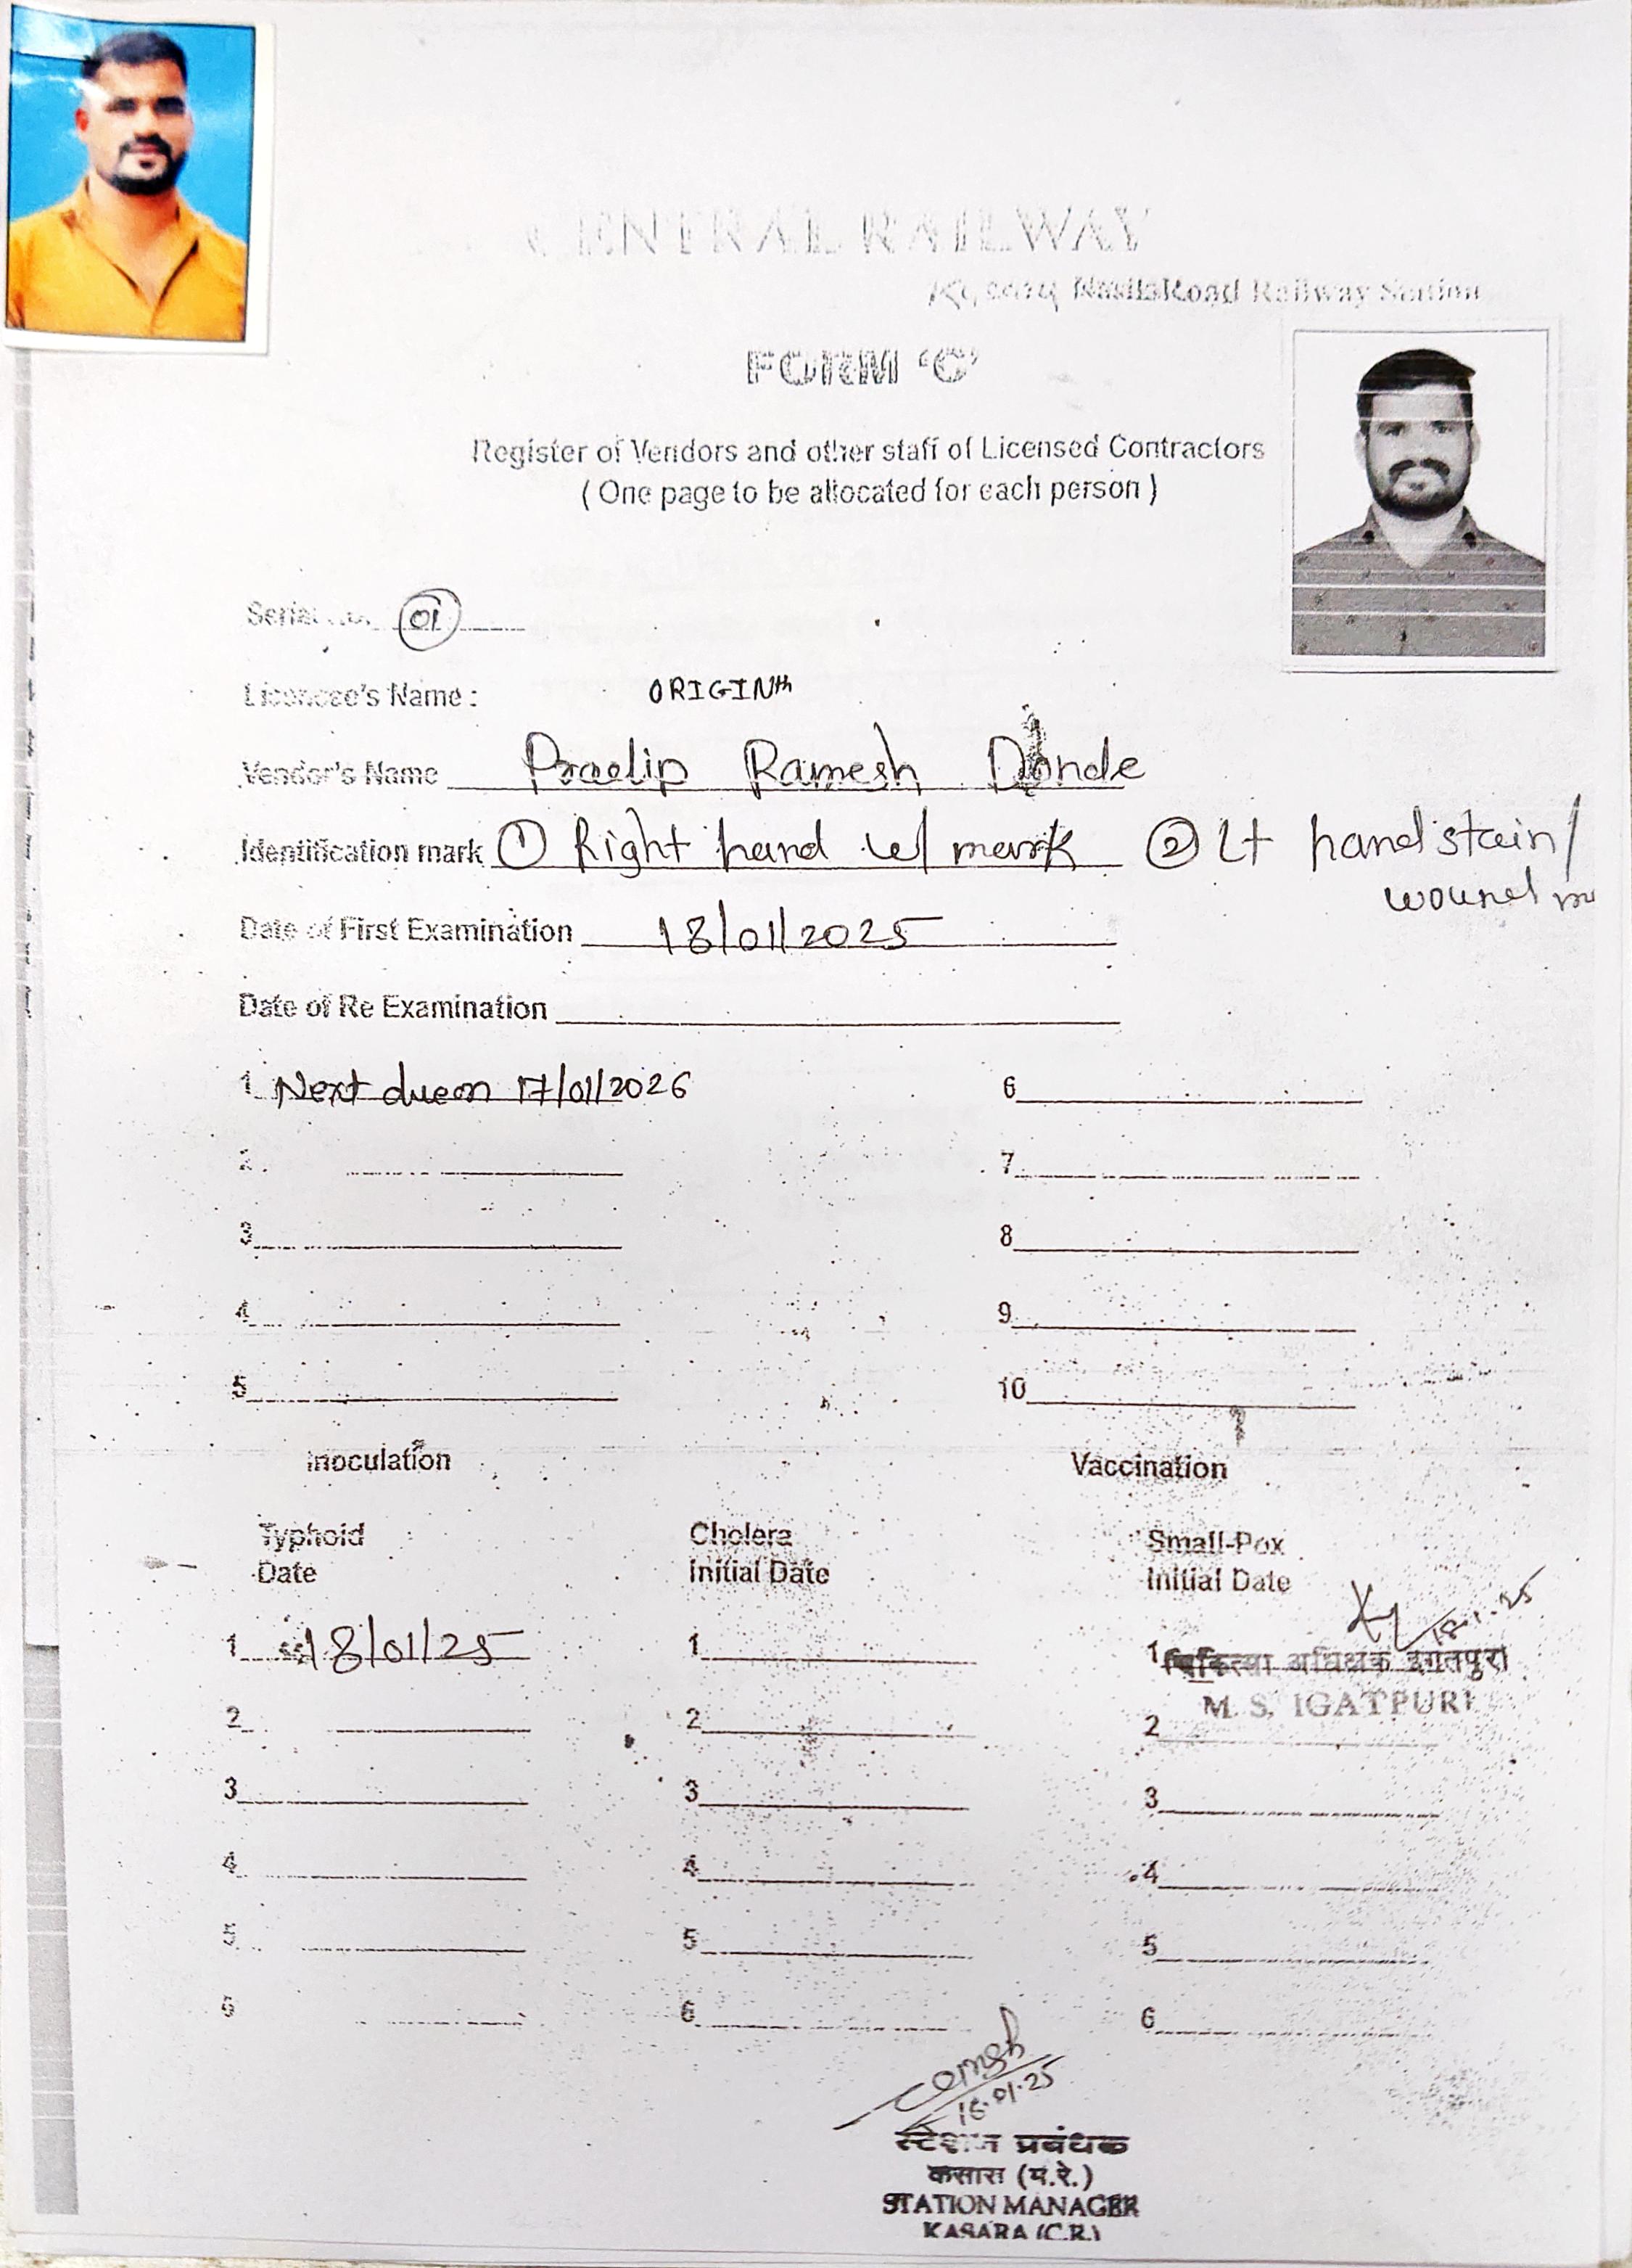 CENTRAL RAILWAY
Nasik Road Railway Station
FORM 'C'
Register of Vendors and other staff of Licensed Contractors
( One page to be allocated for each person )
Serial No. 01
Licencee's Name : ORIGINth
Vendor's Name Pradip Ramesh Donde
Identification mark ① Right hand w/ mark ② Lt hand stain/
wound m
Date of First Examination 18/01/2025
Date of Re Examination
1 Next due on 17/01/2026 6
2. 7
3 8
4 9
5 10
Inoculation Vaccination
Typhoid Cholera Small-Pox
Date Initial Date Initial Date
18.1.25
1 18/01/25 1 1 चिकित्सा अधिक्षक इगतपुरी
M. S. IGATPURI
2 2 2
3 3 3
4 4 4
5 5 5
6 6 6
18.01.25
स्टेशन प्रबंधक
कसारा (म.रे.)
STATION MANAGER
KASARA (C.R.)